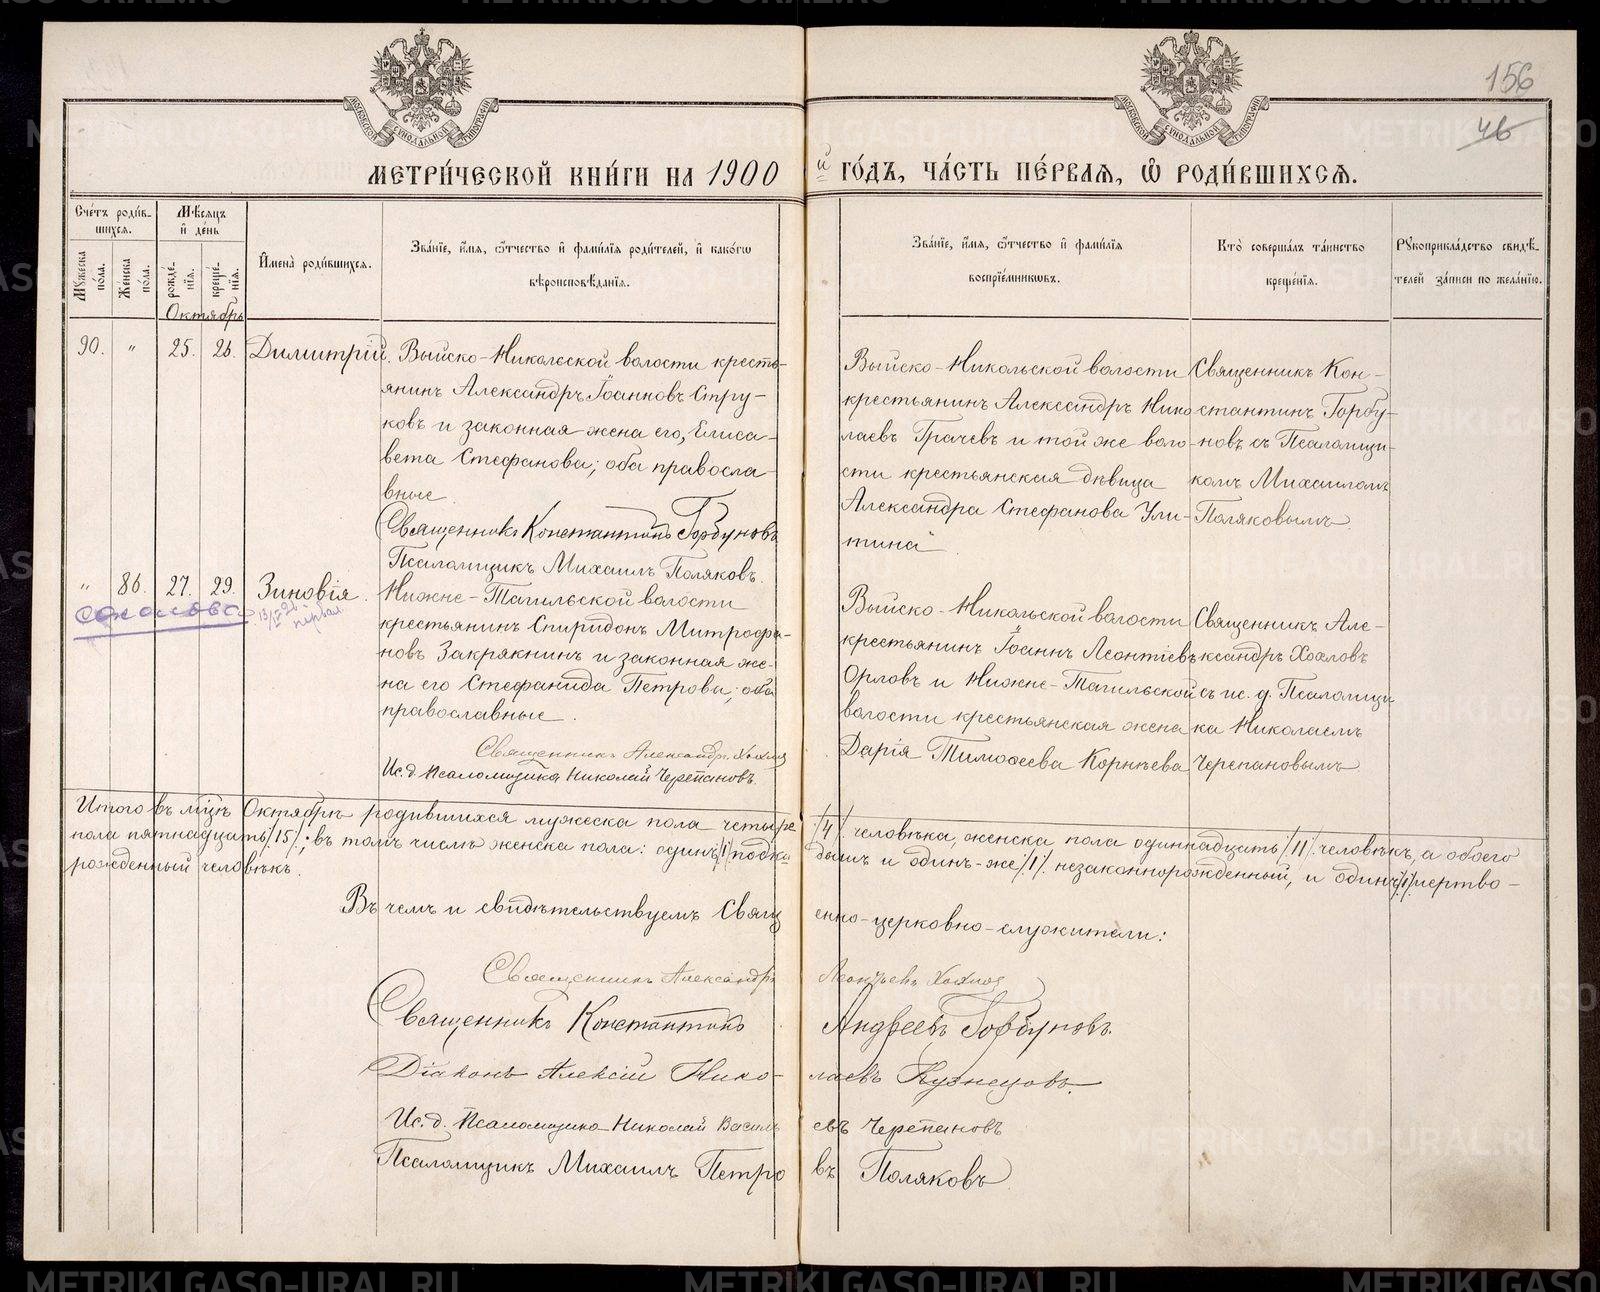 156
46
МЕТРИЧЕСКОЙ КНИГИ НА 1900 й ГОДЪ, ЧАСТЬ ПЕРВАЯ, Ѡ РОДИВШИХСЯ.
Счетъ родив-
шихся.
Мѣсяцъ
и день
Мужеска
пола.
Женска
пола.
рожде-
нія.
креще-
нія.
Имена родившихся.
Званіе, имя, ѿчество и фамилія родителей, и какогѡ
вѣроисповѣданія.
Званіе, имя, ѿчество и фамилія
воспріемниковъ.
Кто совершалъ таинство
крещенія.
Рукоприкладство свидѣ-
телей записи по желанію.
Октябрь
90. " 25. 26. Димитрій.
Выйско-Николаеской волости кресть-
янинъ Александръ Іоанновъ Стру-
ковъ и законная жена его, Елиса-
вета Стефанова; оба правосла-
вные
Священникъ Константинъ Горбуновъ
Псаломщикъ Михаилъ Поляковъ.
Выйско-Никольской волости
крестьянинъ Александръ Нико-
лаевъ Грачевъ и той же воло-
сти крестьянская дѣвица
Александра Стефанова Ули-
тина
Священникъ Кон-
стантинъ Горбу-
новъ съ Псаломщи-
комъ Михаиломъ
Поляковымъ
" 86. 27. 29. Зиновія.
Нижне-Тагильской волости
крестьянинъ Спиридонъ Митрофа-
новъ Закрякнинъ и законная же-
на его Стефанида Петрова; оба
православные.
Священникъ Александръ Хохлов
Ис. д. Псаломщика Николай Черепановъ.
Выйско-Никольской волости
крестьянинъ Іоаннъ Леонтіевъ
Орловъ и Нижне-Тагильской
волости крестьянская жена
Дарія Тимоѳеева Корнѣева
Священникъ Але-
ксандръ Хохловъ
съ ис. д. Псаломщи
ка Николаемъ
Черепановымъ
Итого въ мцѣ Октябрѣ родившихся мужеска пола четыре /4/ человѣка, женска пола одиннадцать /11/ человѣкъ, а обоего
пола пятнадцать /15/; въ томъ числѣ женска пола: одинъ /1/ подки дышъ и одинъ-же /1/ незаконнорожденный, и одинъ /1/ мертво-
рожденный человѣкъ.
Въ чемъ и свидѣтельствуемъ Свящ енно-церковно-служители:
Священникъ Александръ Леонтьевъ Хохлов
Священникъ Константинъ Андреевъ Горбуновъ.
Діаконъ Алексій Нико- лаевъ Кузнецовъ.
Ис. д. Псаломщика Николай Василь евъ Черепановъ
Псаломщикъ Михаилъ Петро въ Поляковъ
METRIKI.GASO-URAL.RU